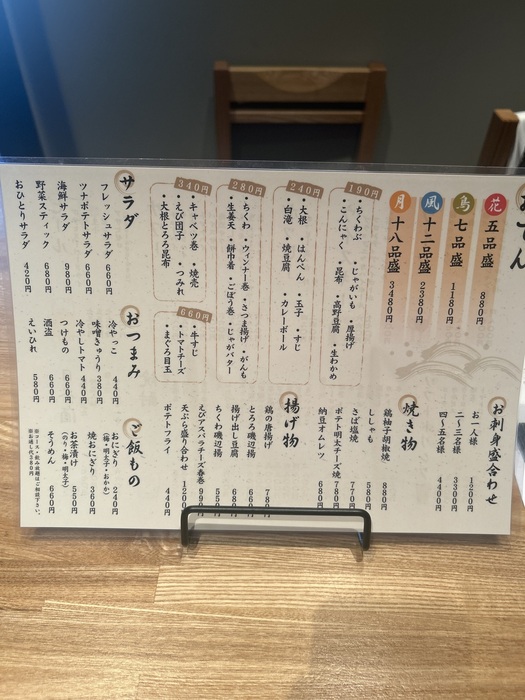 おでん
花 五品盛 880円
鳥 七品盛 1180円
風 十二品盛 2380円
月 十八品盛 3480円
190円
・ちくわぶ ・じゃがいも ・厚揚げ
・こんにゃく ・昆布 ・高野豆腐 ・生わかめ
240円
・大根 ・はんぺん ・玉子 ・すじ
・白滝 ・焼豆腐 ・カレーボール
280円
・ちくわ ・ウィンナー巻 ・さつま揚げ ・がんも
・生姜天 ・餅巾着 ・ごぼう巻 ・じゃがバター
340円
・キャベツ巻 ・焼売
・えび団子 ・つみれ
・大根とろろ昆布
660円
・牛すじ
・トマトチーズ
・まぐろ目玉
サラダ
フレッシュサラダ 660円
ツナポテトサラダ 660円
海鮮サラダ 980円
野菜スティック 680円
おひとりサラダ 420円
おつまみ
冷やっこ 440円
味噌きゅうり 380円
冷やしトマト 440円
つけもの 660円
酒盗 660円
えいひれ 580円
お刺身盛合わせ
お一人様 1200円
二〜三名様 3300円
四〜五名様 4400円
焼き物
鶏柚子胡椒焼 880円
ししゃも 580円
さば塩焼 770円
ポテト明太チーズ焼 780円
納豆オムレツ 680円
揚げ物
鶏の唐揚げ
とろろ磯辺揚
揚げ出し豆腐
ちくわ磯辺揚
えびアスパラチーズ春巻
天ぷら盛り合わせ
ポテトフライ 440円
ご飯もの
おにぎり 240円
(梅・明太子・おかか)
焼おにぎり 360円
お茶漬け 550円
(のり・梅・明太子)
そうめん 660円